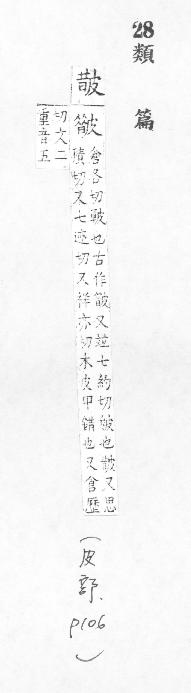 28
類
篇
皵
倉各切皴也古作又竝七約切皴也皵又思
積切又七迹切又祥亦切木皮甲錯也又倉歷
切文二
重音五
(皮部. p106)